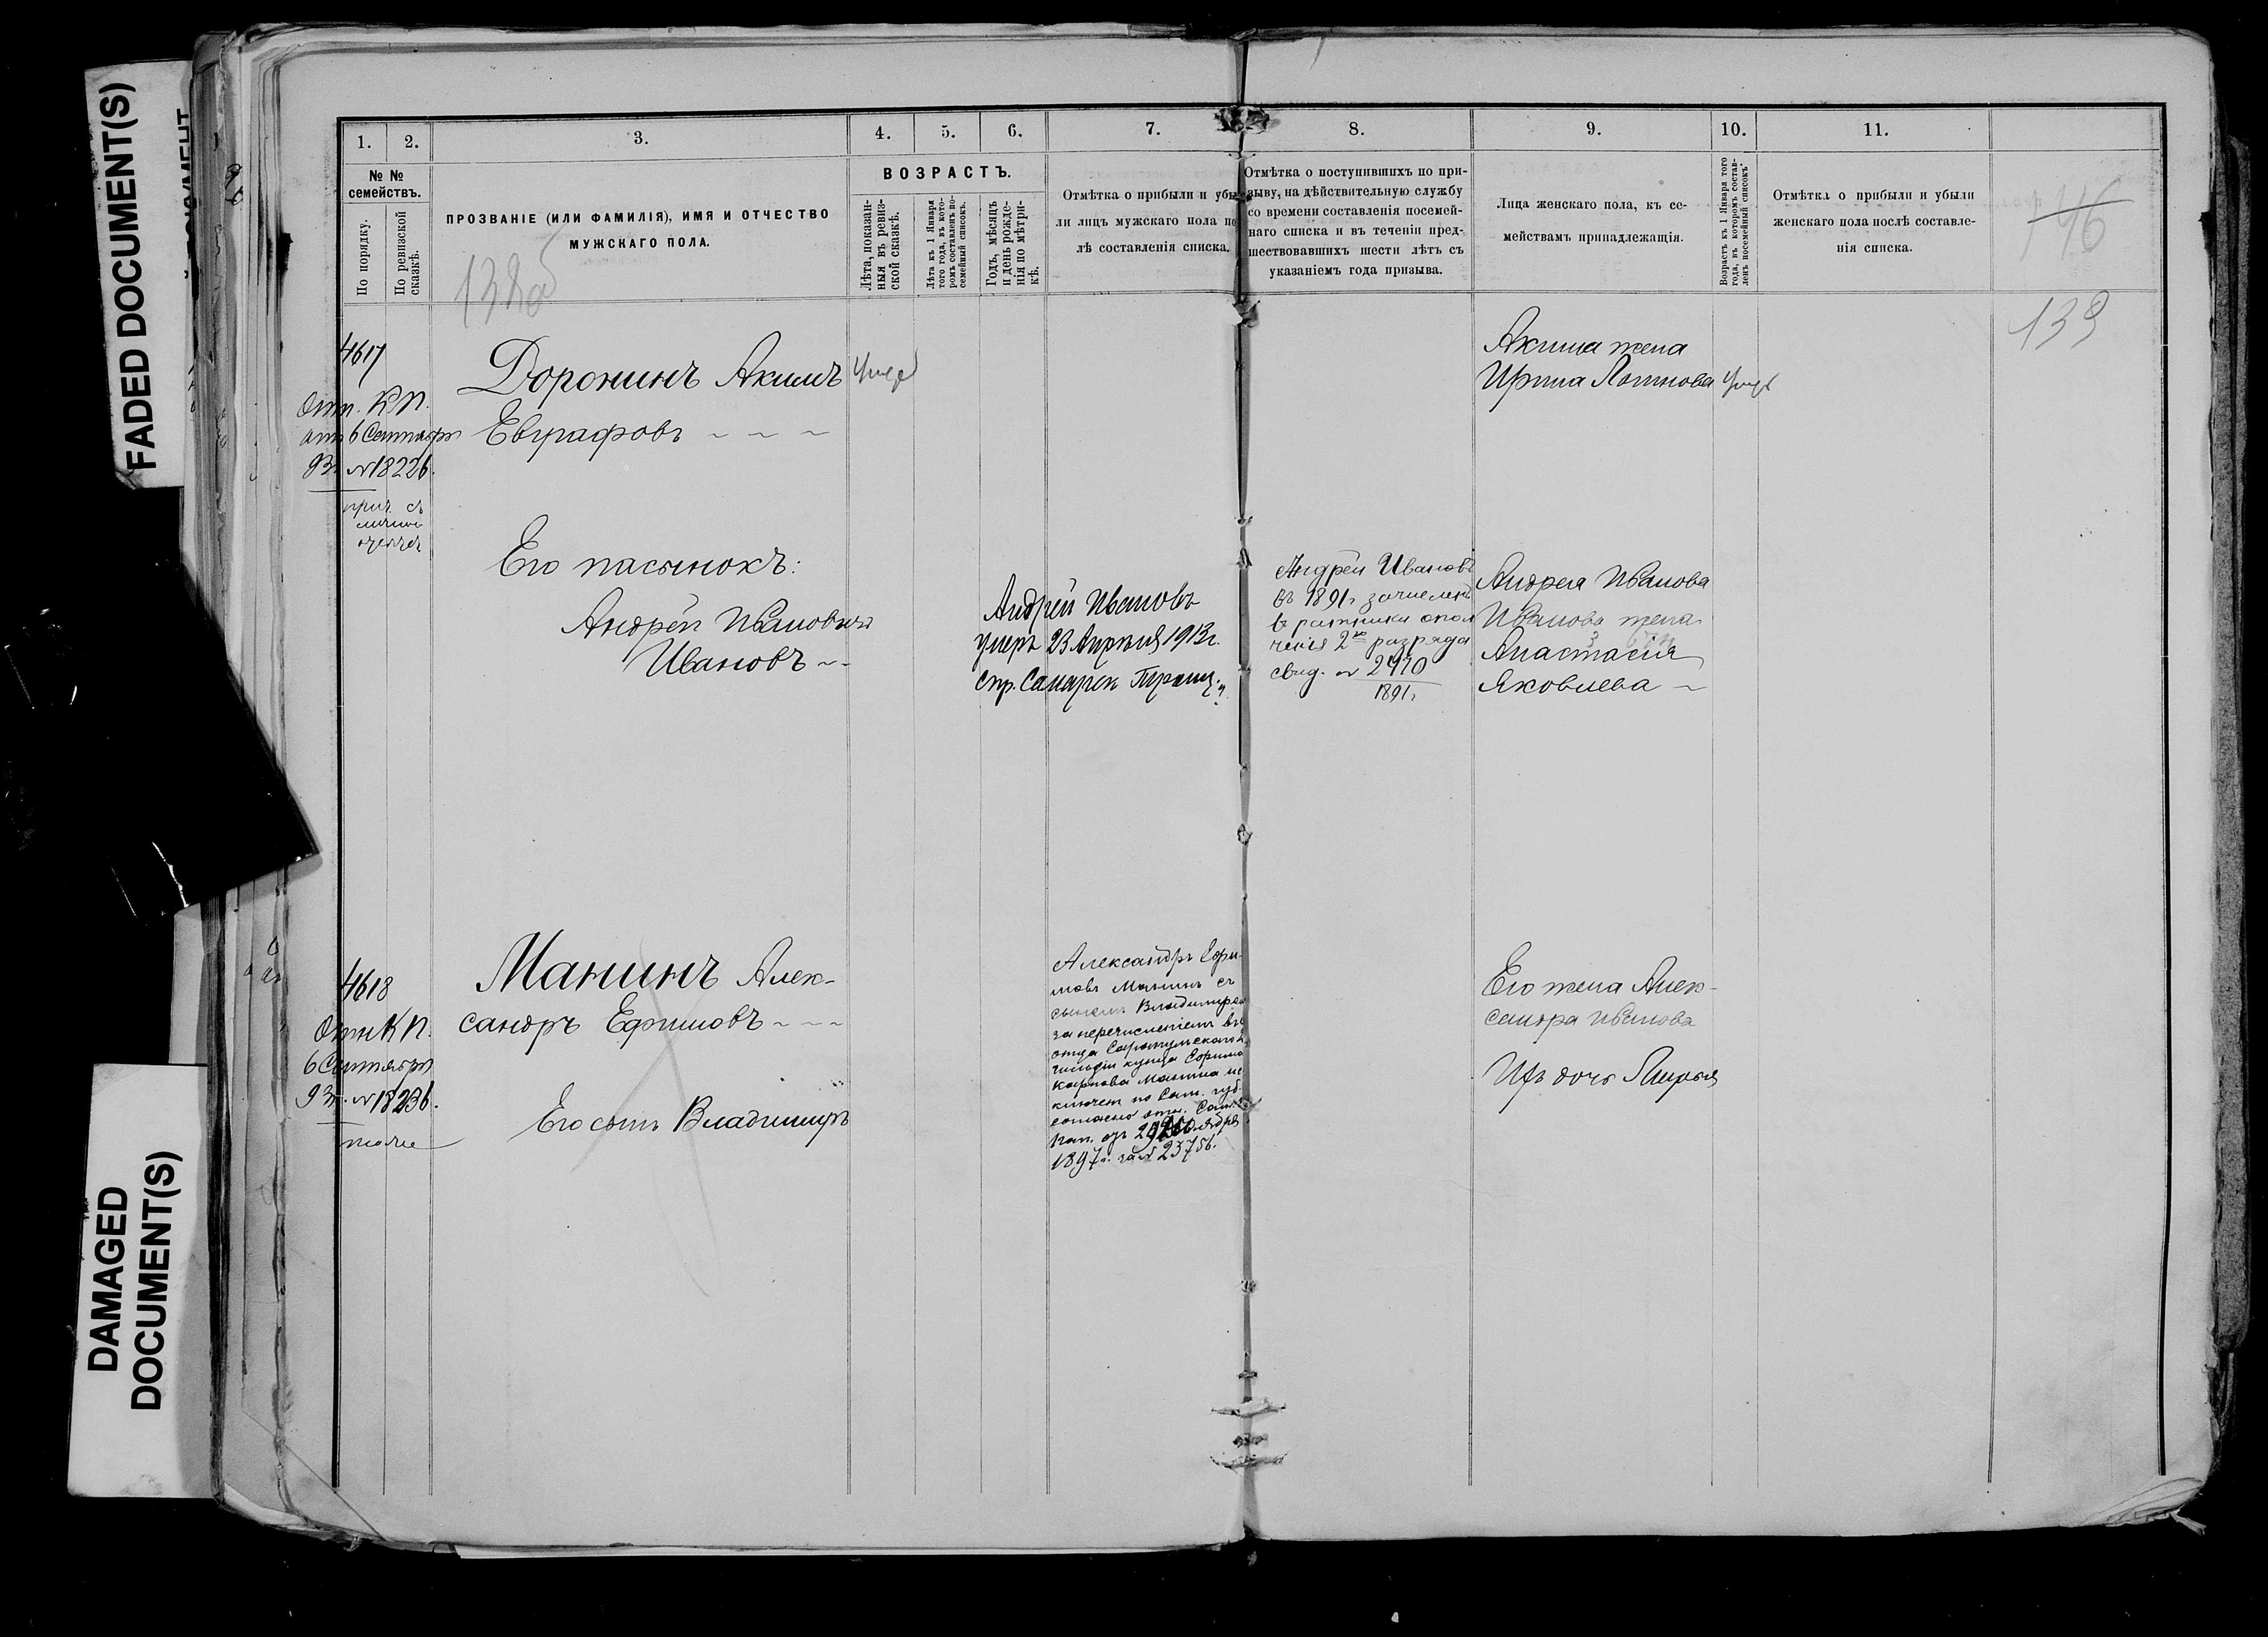 FADED DOCUMENT(S)
DAMAGED
DOCUMENT(S)
1.
2.
3.
4.
5.
6.
7.
8.
9.
10.
11.
№ №
семействъ.
По порядку.
По ревизской
сказкѣ.
ПРОЗВАНІЕ (ИЛИ ФАМИЛІЯ), ИМЯ И ОТЧЕСТВО
МУЖСКАГО ПОЛА.
ВОЗРАСТЪ.
Лѣта, показан-
ныя въ ревиз-
ской сказкѣ.
Лѣта къ 1 Января
того года, въ кото-
ромъ составленъ по-
семейный списокъ.
Годъ, мѣсяцъ
и день рожде-
нія по метри-
кѣ.
Отмѣтка о прибыли и убы
ли лицъ мужскаго пола по
лѣ составленія списка.
Отмѣтка о поступившихъ по при-
зыву, на дѣйствительную службу
со времени составленія посемей-
наго списка и въ теченіи пред-
шествовавшихъ шести лѣтъ съ
указаніемъ года призыва.
Лица женскаго пола, къ се-
мействамъ принадлежащія.
Возрастъ къ 1 Января того
года, въ которомъ состав-
ленъ посемейный списокъ.
Отмѣтка о прибыли и убыли
женскаго пола послѣ составле-
нія списка.
146
139
4617
Отн. К П.
отъ 6 Сентября
93г. №18226.
прич. съ
Доронинъ Акимъ
Евграфовъ
Его пасынокъ:
Андрей Ивановичъ
Ивановъ
Андрей Ивановъ
умеръ 23 Апрѣля 1913г.
Андрей Ивановъ
въ 1891г зачисленъ
въ ратники опол
ченія 2го разряда
свид. № 2410
1891г
Акима жена
Ирина Логинова
Андрея Иванова
Иванова жена
Анастасія
Яковлева
4618
Отн К П.
6 Сентября
93г. №18236.
тоже
Манинъ Алек-
сандръ Ефимовъ
Его сынъ Владимиръ
Александръ Ефи-
мовъ Манинъ съ
сыномъ Владимиромъ
за перечисленіемъ
отца
гильдіи купца Ефима
Карпова Манина
по Сам. губ.
согласно отн.
1897г. за № 23756.
Его жена Алек-
сандра Иванова
Ихъ дочь